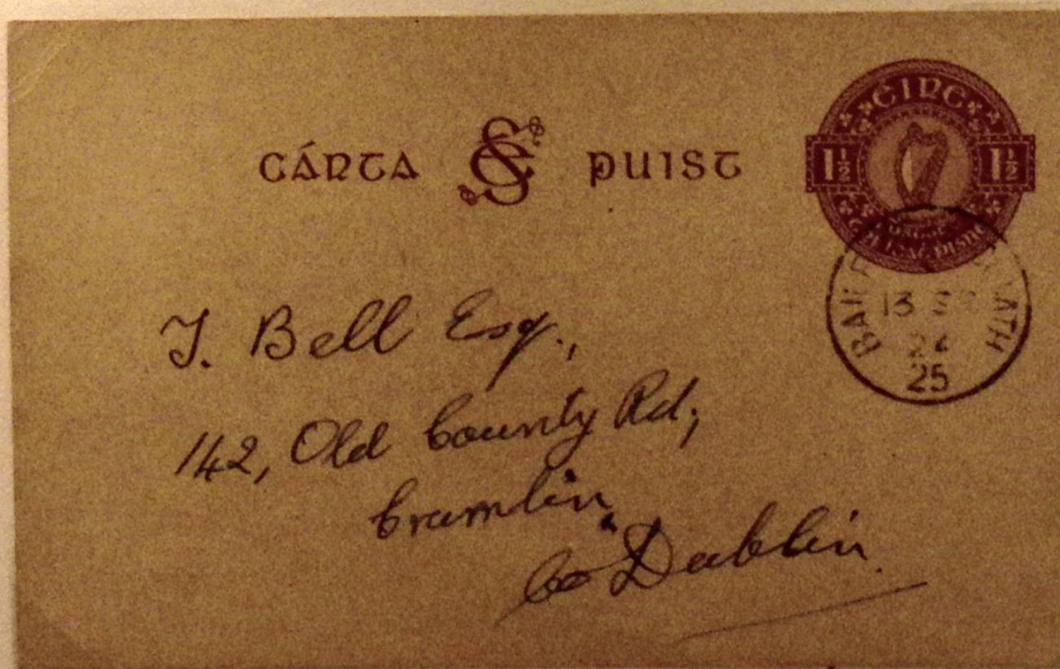 CÁRTA SÉ PUIST
ÉIRE
1½ 1½
13
25
T. Bell Esq.,
142, Old County Rd,
Crumlin,
Co Dublin.